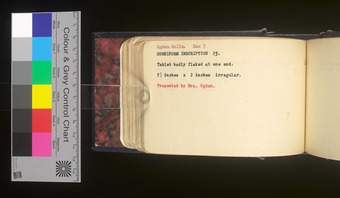 Colour & Grey Control Chart
Ogden Colln. Box 7
CUNEIFORM INSCRIPTION 25.
Tablet badly flaked at one end.
2½ inches x 2 inches irregular.
Presented by Mrs. Ogden.